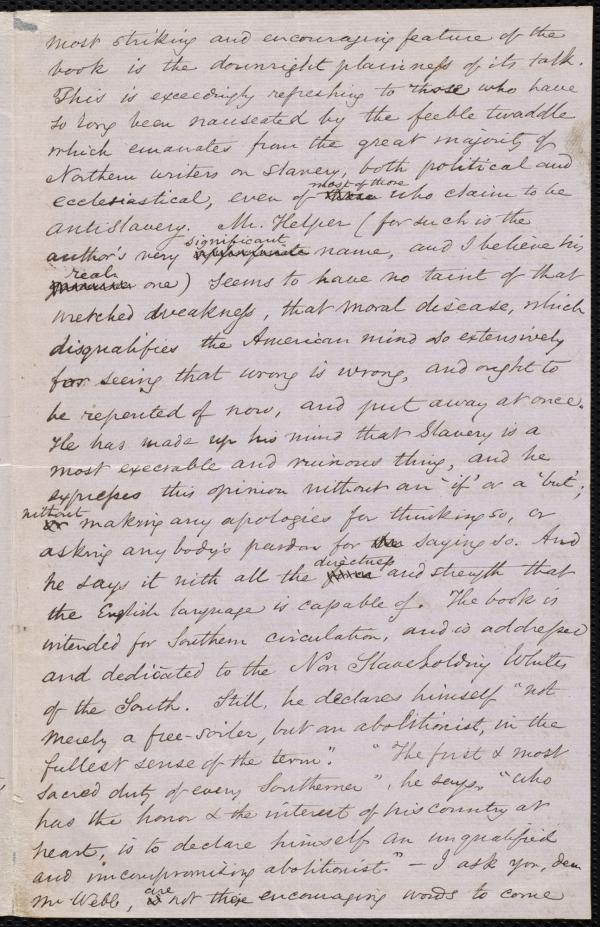 most striking and encouraging feature of the
book is the downright plainness of its talk.
This is exceedingly refreshing to those who have
so long been nauseated by the feeble twaddle
which emanates from the great majority of
Northern writers on slavery, both political and
ecclesiastical, even of most of those who claim to be
antislavery. Mr. Helper (for such is the
author's very significant name, and I believe his
real one) seems to have no taint of that
wretched weakness, that moral disease, which
disqualifies the American mind so extensively
for seeing that wrong is wrong, and ought to
be repented of now, and put away at once.
He has made up his mind that Slavery is a
most execrable and ruinous thing, and he
expresses this opinion without an 'if' or a 'but';
without making any apologies for thinking so, or
asking any body's pardon for saying so. And
he says it with all the directness and strength that
the English language is capable of. The book is
intended for Southern circulation, and is addressed
and dedicated to the Non Slaveholding Whites
of the South. Still, he declares himself "not
merely a free-soiler, but an abolitionist, in the
fullest sense of the term". "The first & most
sacred duty of every Southerner", he says, "who
has the honor & the interest of his country at
heart, is to declare himself an unqualified
and uncompromising abolitionist." — I ask you, dear
Mr Webb, are not these encouraging words to come